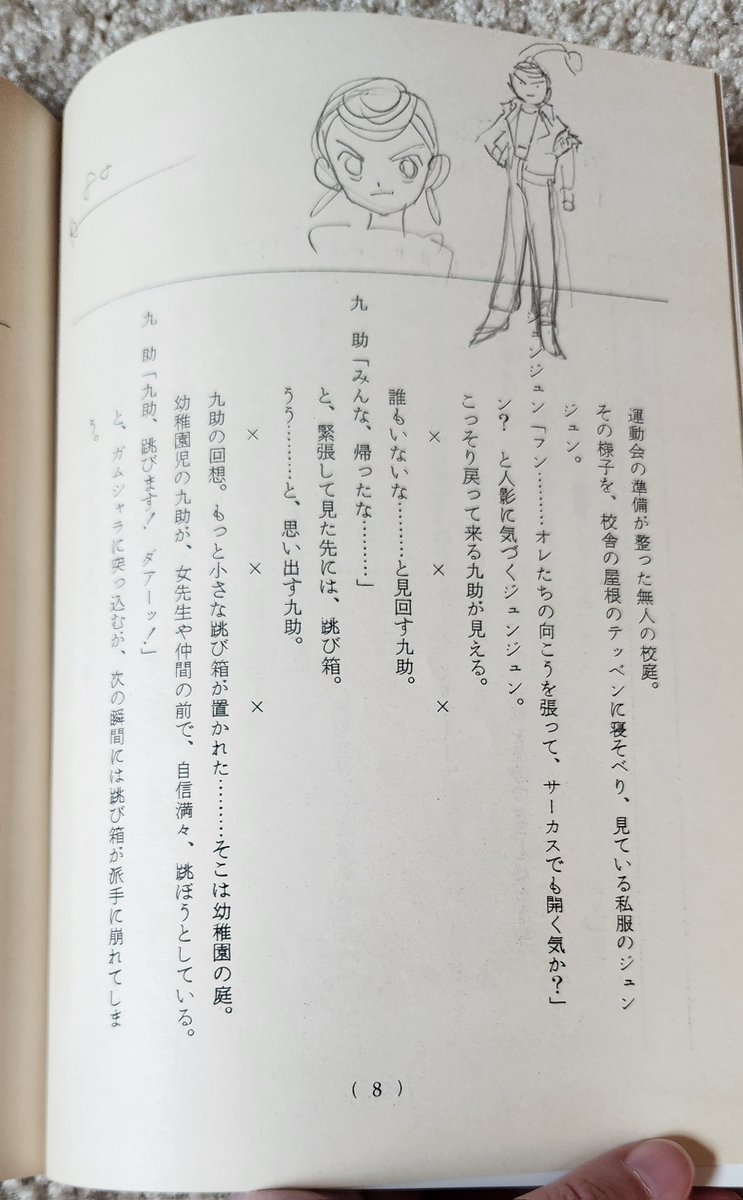 運動会の準備が整った無人の校庭。
その様子を、校舎の屋根のテッペンに寝そべり、見ている私服のジュン
ジュン。
ジュンジュン「フン………オレたちの向こうを張って、サーカスでも開く気か?」
ン? と人影に気づくジュンジュン。
こっそり戻って来る九助が見える。
× × ×
誰もいないな………と見回す九助。
九 助「みんな、帰ったな…………」
と、緊張して見た先には、跳び箱。
うう………と、思い出す九助。
× × ×
九助の回想。もっと小さな跳び箱が置かれた………そこは幼稚園の庭。
幼稚園児の九助が、女先生や仲間の前で、自信満々、跳ぼうとしている。
九 助「九助、跳びます! ダアーッ!」
と、ガムシャラに突っ込むが、次の瞬間には跳び箱が派手に崩れてしま
う。
( 8 )